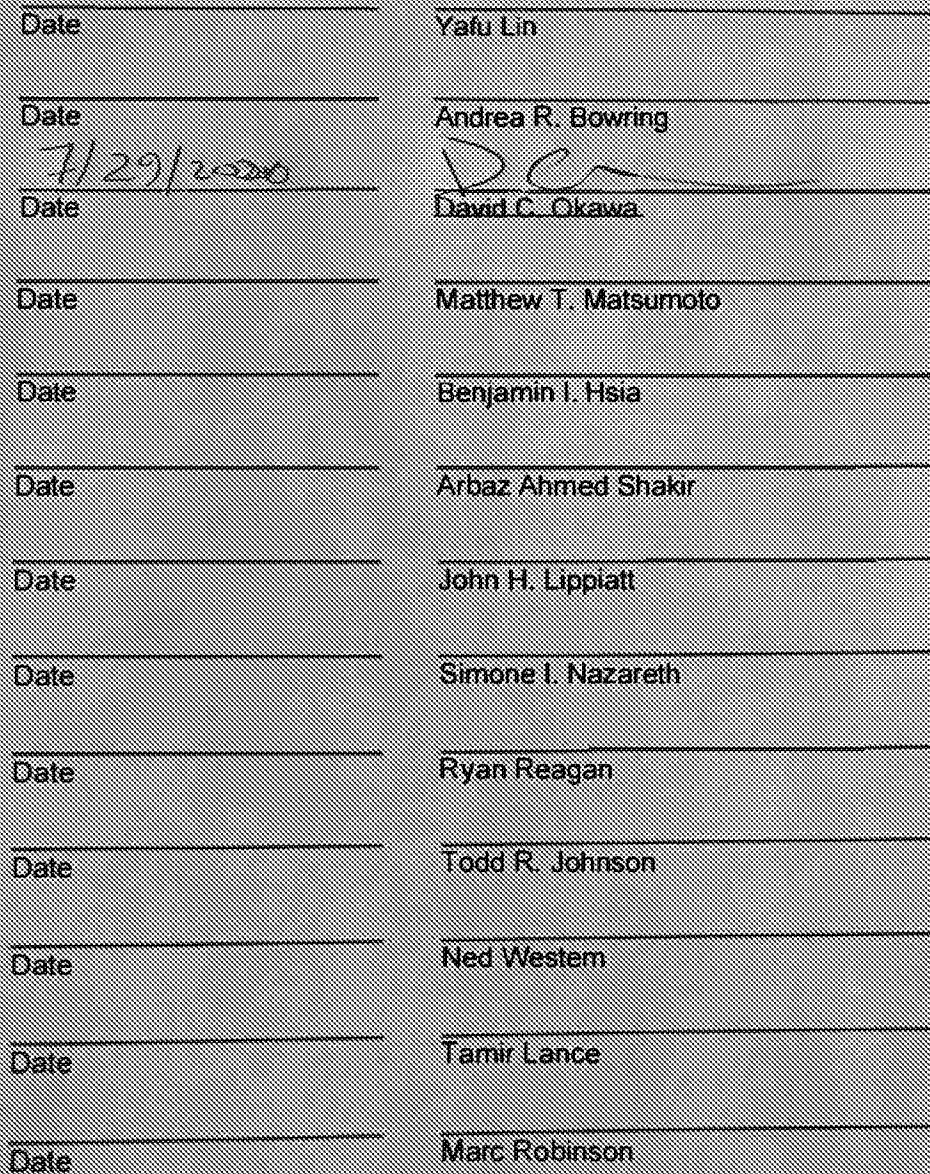 Date Yafu Lin
Date Andrea R. Bowring
7/29/2020
Date David C. Okawa
Date Matthew T. Matsumoto
Date Benjamin I. Hsia
Date Arbaz Ahmed Shakir
Date John H. Lippiatt
Date Simone I. Nazareth
Date Ryan Reagan
Date Todd R. Johnson
Date Ned Western
Date Tamir Lance
Date Marc Robinson